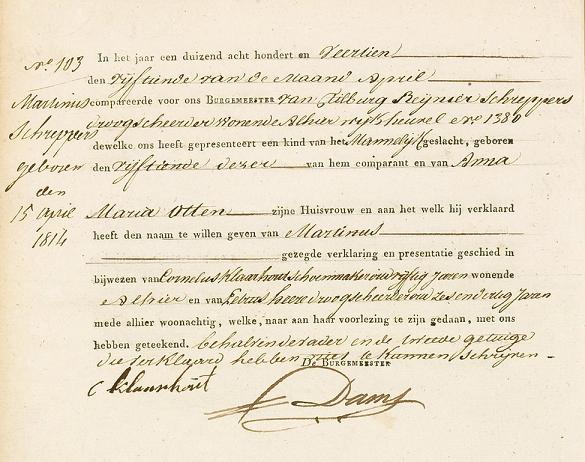 No. 103
Martinus
Schreppers
geboren
den
15 april
1814
In het jaar een duizend acht hondert en Veertien
den Vijftiende van de Maand April
compareerde voor ons BURGEMEESTER van Tilburg Reynier Schreppers
droogscheerder Wonende Alhier wijk heuvel No 1380
dewelke ons heeft gepresenteert een kind van het Mannelijk geslacht, geboren
den Vijftiende dezer van hem comparant en van Anna
Maria Otten zijne Huisvrouw en aan het welk hij verklaard
heeft den naam te willen geven van Martinus
gezegde verklaring en presentatie geschied in
bijwezen van Cornelus Klaarhout Schoenmaker oud vijftig Jaren wonende
Alhier en van heere droogscheerder oud zes en dertig Jaren
mede alhier woonachtig, welke, naar aan haar voorlezing te zijn gedaan, met ons
hebben geteekend. behalve de vader en de tweede getuige
die verklaard hebben niet te kunnen Schrijven
De BURGEMEESTER
C Klaarhout
Dams